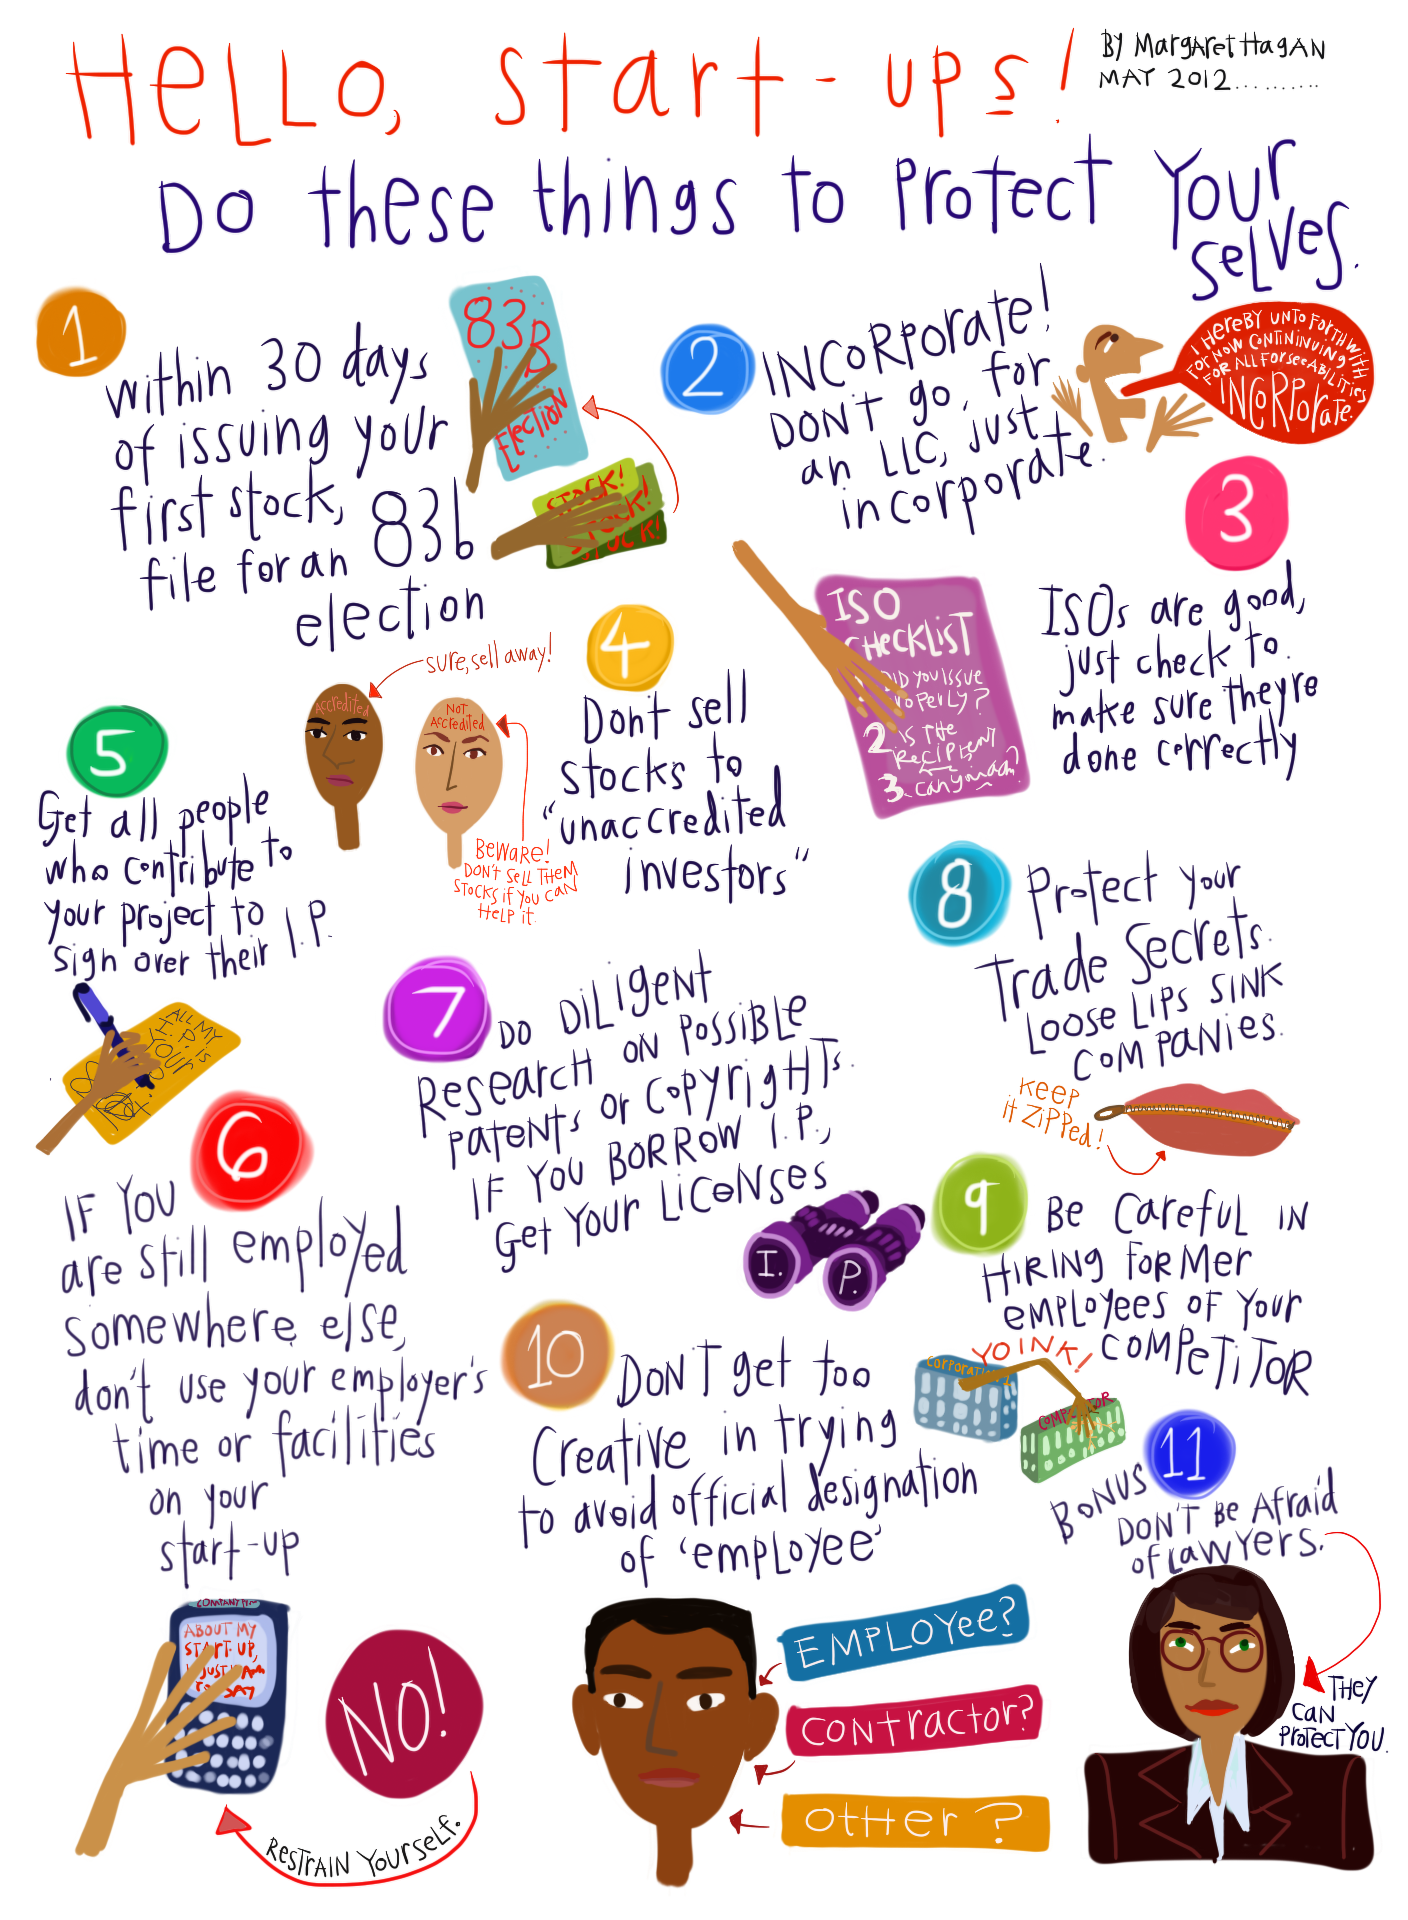 HeLLO, start-ups!
BY MargaretHagAN
MAY 2012..........
Do these things to Protect Your
selves.
1
within 30 days
of issuing your
first stock,
file for an 83b
election
83B
Election
STOCK!
STOCK!
STOCK!
2
INCORPorate!
DON'T go for
an LLC, just
incorporate.
I HereBY UNTO FORTHWITH
FOR NOW CONTINIUING
FOR ALL ForseeABILITIES
INCORPorate.
3
ISOs are good,
just check to
make sure theyre
done correctly
ISO
CHeCKLIST
DID YOU ISSUE
ProPerLY?
2 is the
reciPient
3. can you
4
Dont sell
stocks to
"unaccredited
investors"
sure, sell away!
Accredited
NOT
Accredited
BeWare!
DON'T SELL THEM
STOCKS if YOU CAN
HeLP it.
5
Get all people
who contribute to
your project to
sign over their I.P.
ALL MY
I.P. is
YOUr
6
IF YOU
are still employed
somewhere else,
don't use your employer's
time or facilities
on your
start-up
COMPANY
ABOUT MY
START-UP,
I JUST
NO!
RESTRAIN YOURSeLF.
7
DO DiLIGENT
ReseARCH ON POSSIBLE
PATENTs or COPYrigHTs.
IF YOU BORROW I.P.,
Get YOUr LICeNSes
I. P.
8
Protect your
Trade Secrets.
LOOSE LIPS SINK
COMPANIES.
KEEP
it ZiPPed!
9
Be CarefuL IN
HIRING FORMer
eMPLOYEES OF YOUr
COMPeTiTOR
YOINK!
CORPORATION
COMPETITOR
10
DON'T get too
Creative in trying
to avoid official designation
of 'employee'
EMPLOYee?
CONtractor?
OtHer?
BONUS 11
DON'T Be Afraid
of LAWYERS.
THeY
CAN
PROTECT YOU.